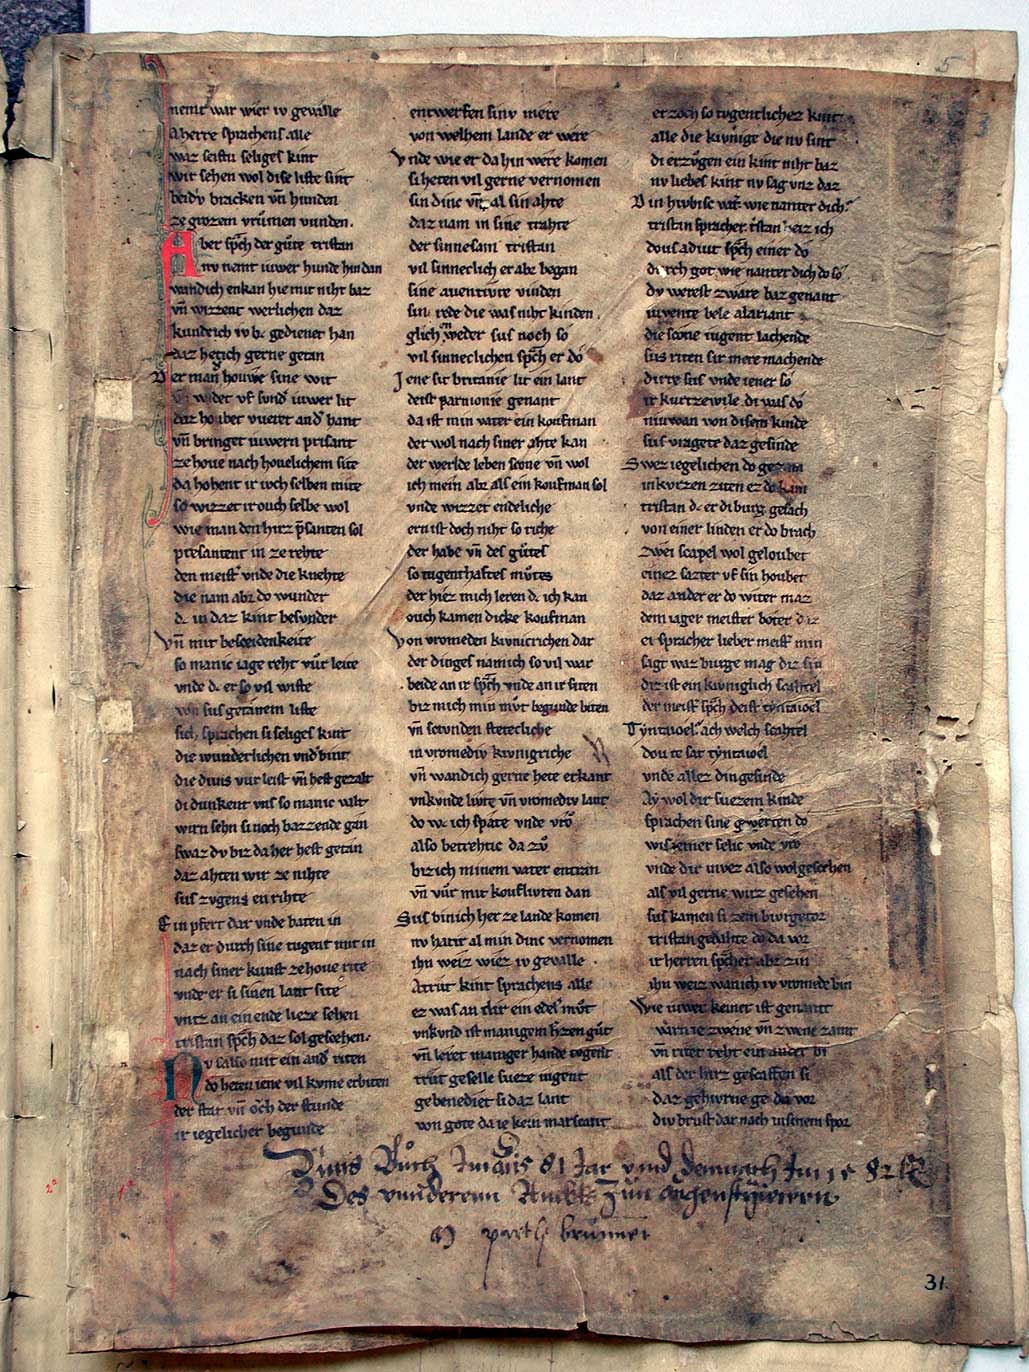 nemt war wier iv gevalle
A herre sprachens alle
waz seistu seliges kint
wir sehen wol dise liste sint
beidv bracken vn̄ hunden
ze grozem vrumen vunden.
Aber sp̄ch der gůte tristan
nv nemt iuwer hunde hin dan
wandich enkan hie mit niht baz
vn̄ wizzent werlichen daz
kunderich iv b. gedienet han
daz hetich gerne getan
Der man howe sine wit
vf sund iuwer lit
daz houbet vueret and hant
vn̄ bringet iuwern prisant
ze houe nach houelichem site
da hohent ir iwch selben mite
so wizzet ir ouch selbe wol
wie man den hirz p̄santen sol
presantent in ze rehte
den meist vnde die knehte
die nam abz do wunder
dz in daz kint besunder
Vn̄ mit bescheidenkeite
so manic iage reht vůr leite
vnde dz er so vil wiste
von sus getanem liste
sich sprachen si seliges kint
die wunderlichen vnd bint
die divs vur leist vn̄ hest gezalt
di dunkent vns so manic valt
wirn sehn si noch bazzende gan
swaz dv biz da her hest getan
daz ahten wir ze nihte
sus zvgens ein rihte
Ein pfert dar vnde baten in
daz er durch sine tugent mit in
nach siner kunst ze houe rite
vnde er si sinen lant site
vntz an ein ende lieze sehen
tristan sp̄ch daz sol geschehen.
Nv sasso mit ein and riten
do heten iene vil kvme erbiten
der stat vn̄ ŏch der stunde
ir iegelicher begunde
entwerfen sinv mere
von welhem lande er were
Vnde wie er da hin were komen
si heten vil gerne vernomen
sin dinc vn̄ al sin ahte
daz nam in sine trahte
der sinnesam tristan
vil sinneclich er abe began
sine auentivre vinden
sin rede die was niht kinden.
glich weder sus noch so
vil sinneclichen sp̄ch er do
Jene sit britanie lit ein lant
deist parmonie genant
da ist min vater ein koufman
der wol nach siner ahte kan
der werlde leben scone vn̄ wol
ich mein abz als ein koufman sol
vnde wizzet endeliche
ern ist doch niht so riche
der habe vn̄ des gůtes
so tugenthaftes můtes
der hiez mich leren dz ich kan
ouch kamen dicke koufman
Von vromeden kvnicrichen dar
der dinges namich so vil war
beide an ir sp̄ch vnde an ir siten
biz mich min můt begunde biten
vn̄ scvnden stetecliche
in vromediv kvnigriche
vn̄ wandich gerne hete erkant
vnkvnde livte vn̄ vromediv lant
do wz ich spate vnde vrŏ
also betrehtic da zů
biz ich minem vater entran
vn̄ vůr mit koufluvten dan
Sus binich her ze lande komen
nv habt ir al min dinc vernomen
ihn weiz wiez iv gevalle.
A trut kint sprachens alle
ez was an dir ein edel můt
vnkvnd ist manigem h̄zen gůt
vn̄ leret maniger hande tvgent
trut geselle sueze iugent
gebenediet si daz lant
von gote da ie kein marscant
erzoch so tvgentlichez kint
alle die kvnige die nv sint
di erzvgen ein kint niht baz
nv liebes kint nv sag vnz daz
Din hvbisc vat wie nanter dich.
tristan spracher tristan heiz ich
dovs adiut sp̄ch einer do
durch got wie nanter dich do so
dv werest zware baz genant
iuvente bele alariant
die scone iugent lachende
sus riten sir mere machende
dirre sus vnde iener so
ir kurtzewile di was do
niuwan von disem kinde
sus vragete daz gesinde
Swez iegelichen do gezam
in kvrzen ziten ez do kam
tristan dz er di burg gesach
von einer linden er do brach
zwei scapel wol geloubet
einez sazter vf sin houbet
daz ander er do witer maz
dem iager meister boter daz
ei spracher lieber meist min
sagt waz burge mag diz sin
diz ist ein kvniglich castel
der meist sp̄ch deist tyntauoel
Tyntauoel. ach welch castel
dou te sat tyntauoel
vnde allez din gesinde
Ay wol dir suezem kinde
sprachen sine gewerten do
wis einer selic vnde vro
vnde die uivez also wol geschehen
als vil gerne wirz gesehen
sus kamen si zem bvrgetor
tristan gedahte do da vor
ir herren sp̄cher abz zin
ihn weiz wanich iv vromede bin
Wie iuwer keiner ist genant
wirn ie zwene vn̄ zwene zamt
vn̄ ritet reht ein ander bi
als der hirz gescaffen si
daz gehurne ge da vor
div brust dar nach in sinem spor
Dints Bůch Im anis 81 Jar vnnd demnach Im 15 82
Des vnnderenn Ambtz Zun augenstyeirrn
31